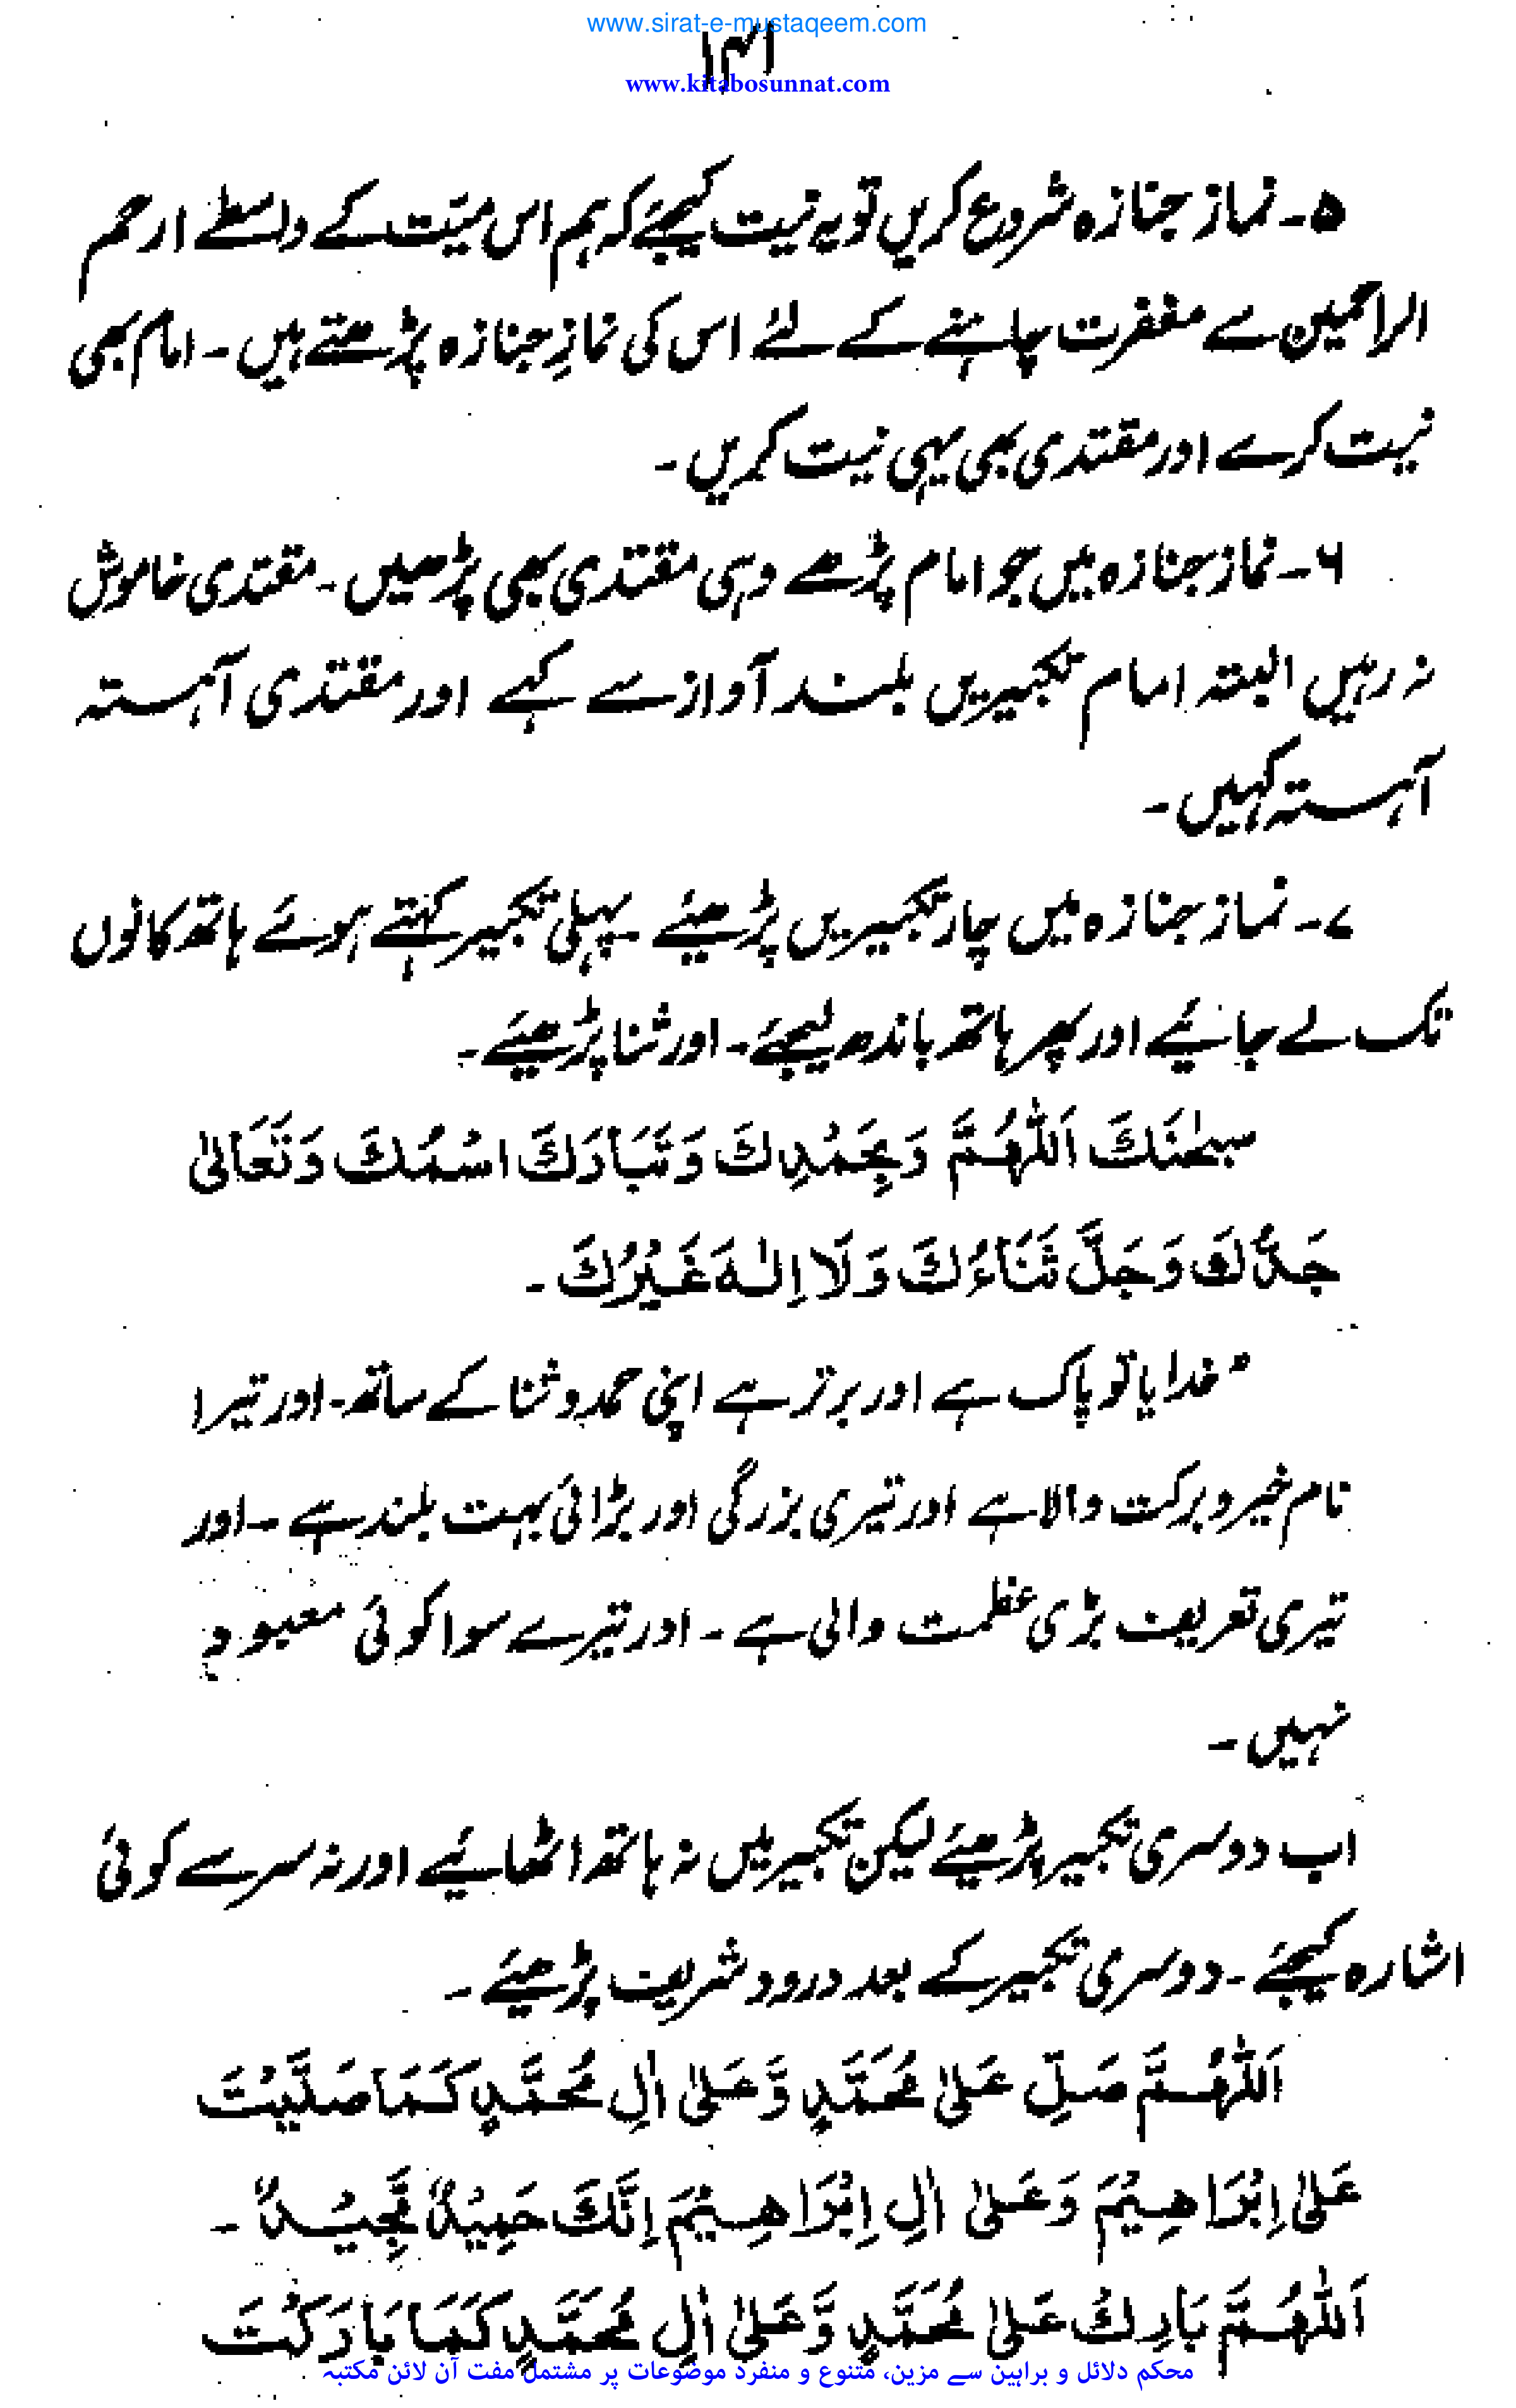 www.sirat-e-mustaqeem.com
۱۴۱
www.kitabosunnat.com
۵۔ نماز جنازہ شروع کریں تو یہ نیت کیجئے کہ ہم اس میّت کے واسطے ارحم
الراحمین سے مغفرت چاہنے کے لئے اس کی نمازِ جنازہ پڑھتے ہیں۔ امام بھی
نیت کرے اور مقتدی بھی یہی نیت کریں۔
۶۔ نماز جنازہ میں جو امام پڑھے وہی مقتدی بھی پڑھیں۔ مقتدی خاموش
نہ رہیں البتہ امام تکبیریں بلند آواز سے کہے اور مقتدی آہستہ
آہستہ کہیں۔
۷۔ نماز جنازہ میں چار تکبیریں پڑھیئے۔ پہلی تکبیر کہتے ہوئے ہاتھ کانوں
تک لے جائیے اور پھر ہاتھ باندھ لیجئے۔ اور ثنا پڑھیئے۔
سبحٰنَكَ اَللّٰهُمَّ وَبِحَمْدِكَ وَتَبَارَكَ اسْمُكَ وَتَعَالٰى
جَدُّكَ وَجَلَّ ثَنَاءُكَ وَلَا اِلٰهَ غَيْرُكَ۔
"خدایا تو پاک ہے اور برتر ہے اپنی حمد و ثنا کے ساتھ۔ اور تیرا
نام خیر و برکت والا ہے اور تیری بزرگی اور بڑائی بہت بلند ہے۔ اور
تیری تعریف بڑی عظمت والی ہے۔ اور تیرے سوا کوئی معبود
نہیں۔
اب دوسری تکبیر پڑھیئے لیکن تکبیر میں نہ ہاتھ اٹھائیے اور نہ سر سے کوئی
اشارہ کیجئے۔ دوسری تکبیر کے بعد درود شریف پڑھیئے۔
اَللّٰهُمَّ صَلِّ عَلٰى مُحَمَّدٍ وَّعَلٰى اٰلِ مُحَمَّدٍ كَمَا صَلَّيْتَ
عَلٰى اِبْرَاهِيْمَ وَعَلٰى اٰلِ اِبْرَاهِيْمَ اِنَّكَ حَمِيْدٌ مَّجِيْدٌ۔
اَللّٰهُمَّ بَارِكْ عَلٰى مُحَمَّدٍ وَّعَلٰى اٰلِ مُحَمَّدٍ كَمَا بَارَكْتَ
محکم دلائل و براہین سے مزین، متنوع و منفرد موضوعات پر مشتمل مفت آن لائن مکتبہ